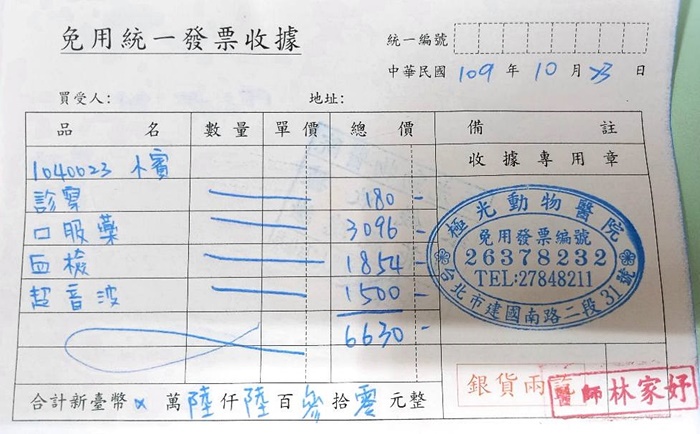 免用統一發票收據
統一編號
中華民國 109 年 10 月 23 日
買受人： 地址：
品名 數量 單價 總價 備註
收據專用章
1040023 卜賓
診察 180 -
口服藥 3096 -
血檢 1854 -
超音波 1500 -
6630 -
極光動物醫院
免用發票編號
26378232
TEL:27848211
台北市建國南路二段31號
銀貨兩
醫師林家妤
合計新臺幣 x 萬 陸 仟 陸 百 參 拾 零 元整